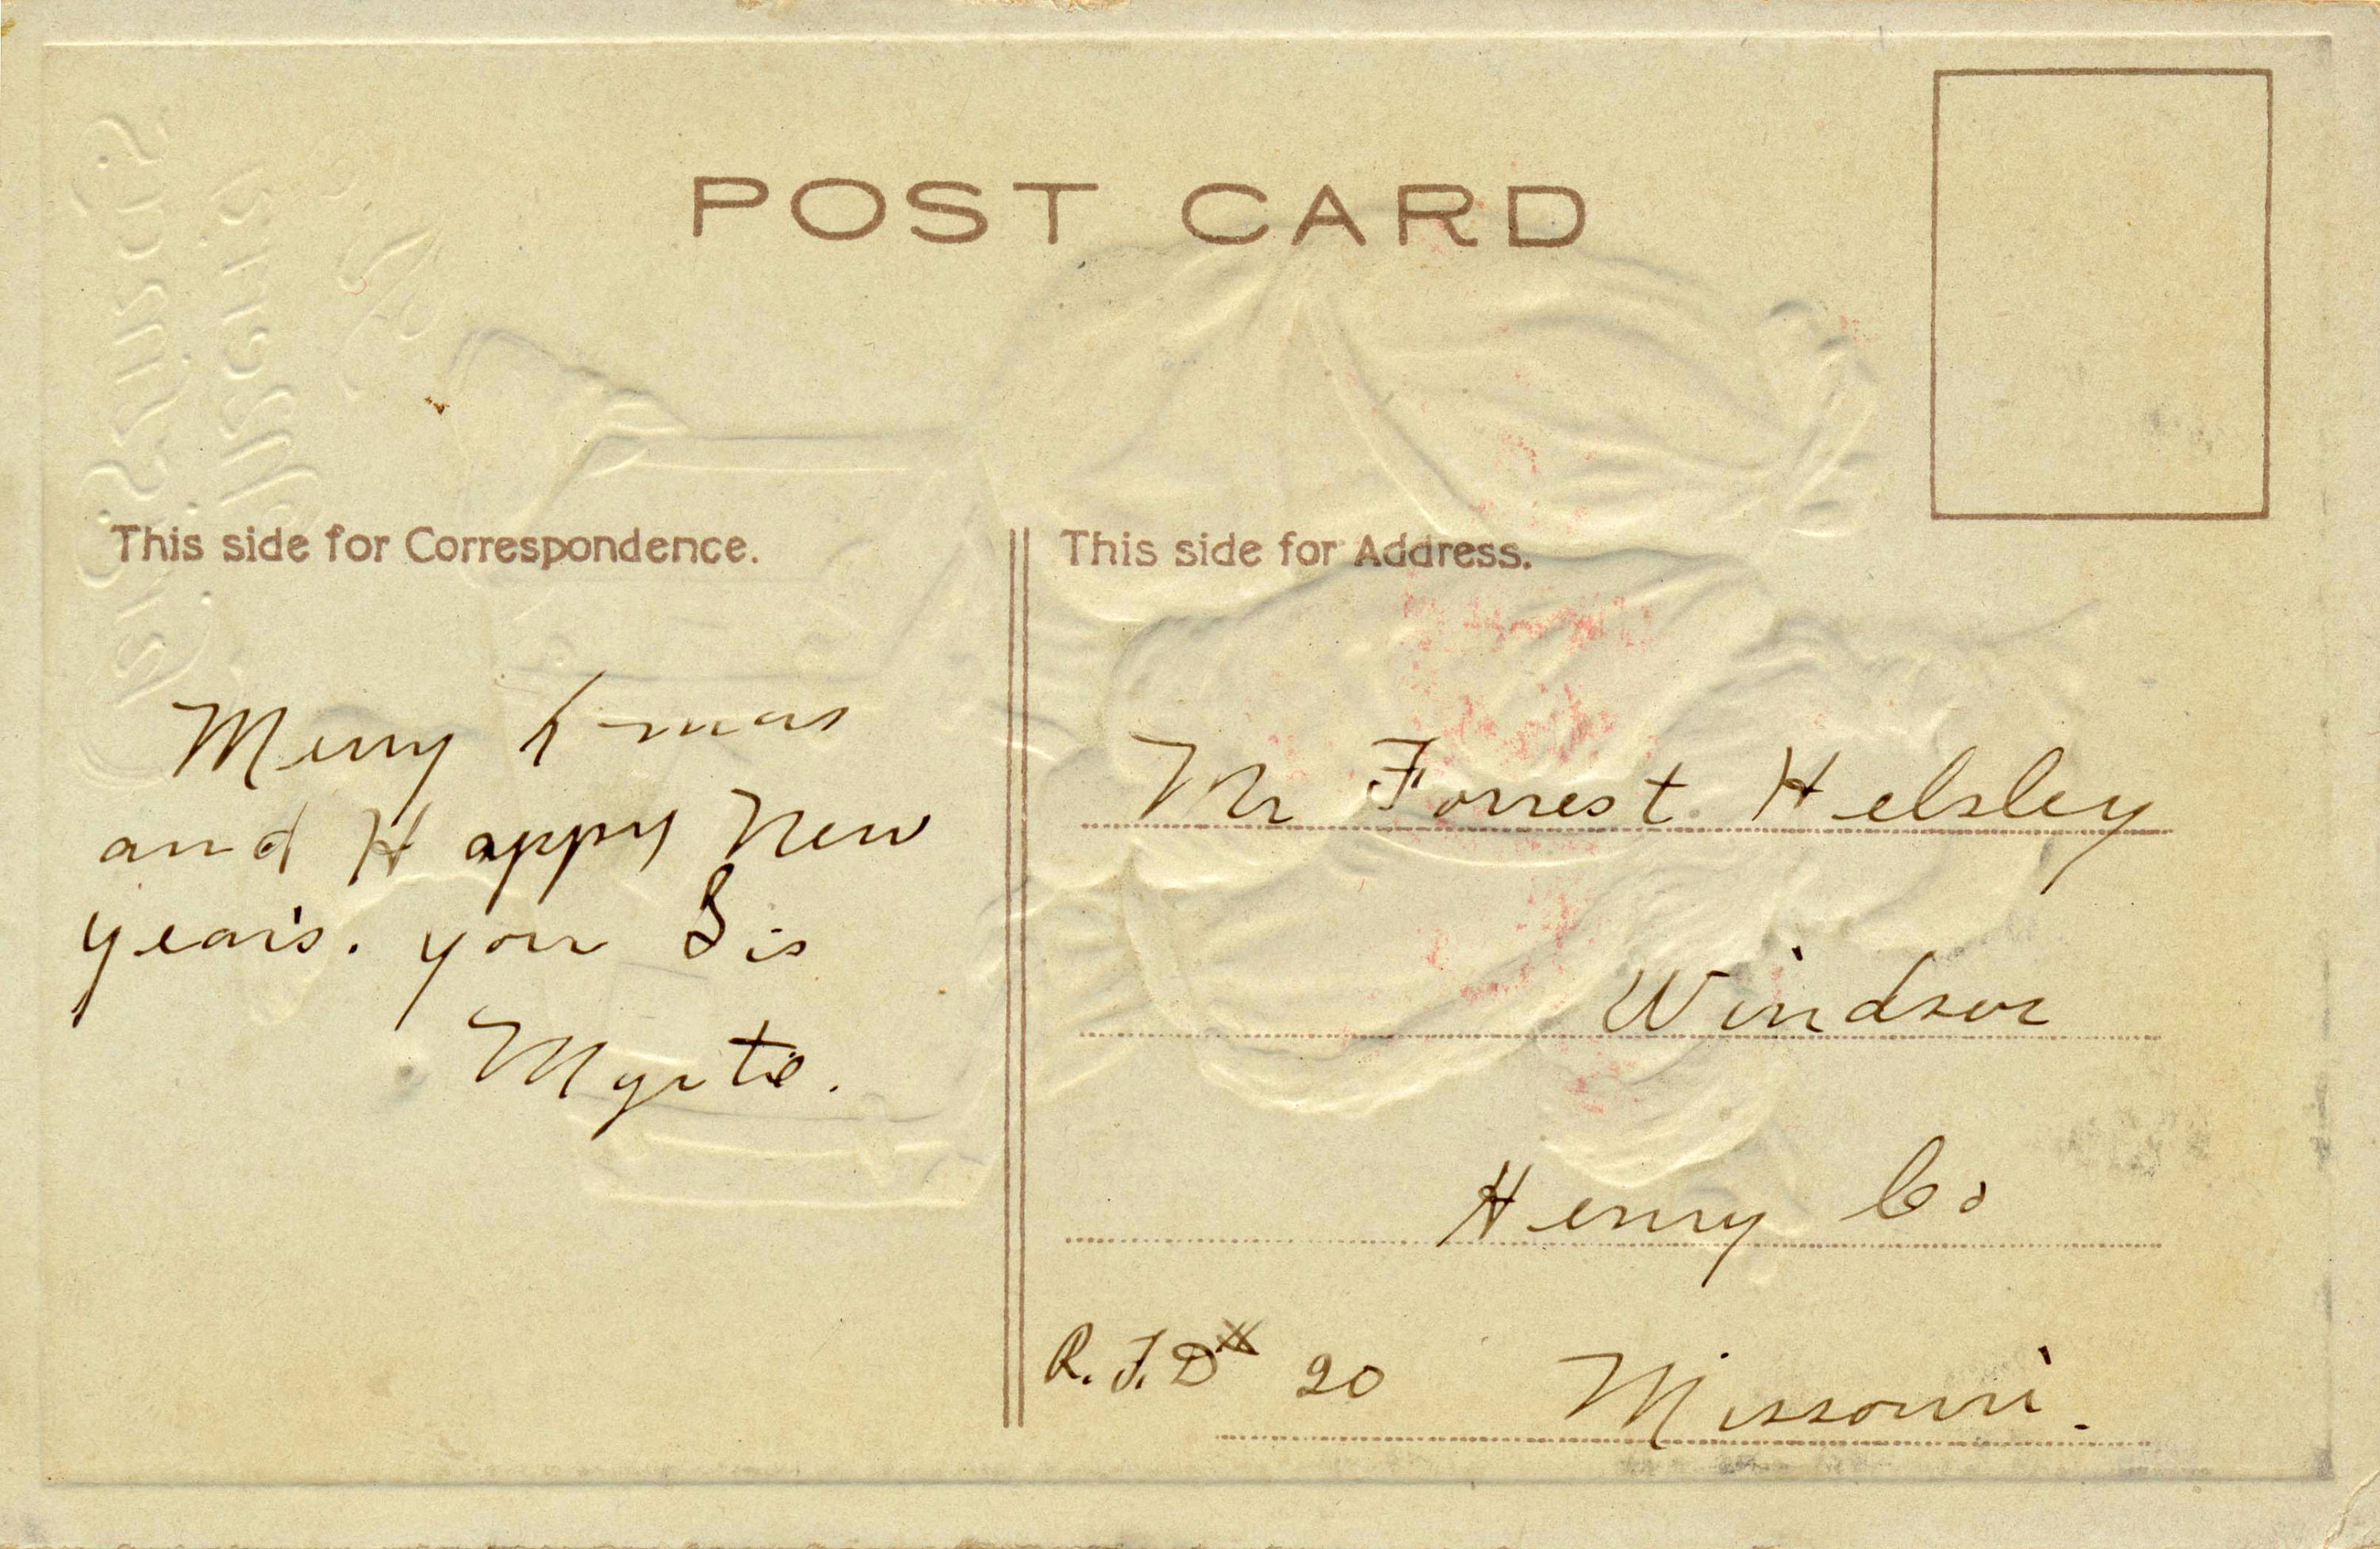 POST CARD
This side for Correspondence.
Merry Xmas
and Happy New
years. your Sis
Myrte.
This side for Address.
Mr Forrest Helsley
Windsor
Henry Co
R.F.D # 20 Missouri.